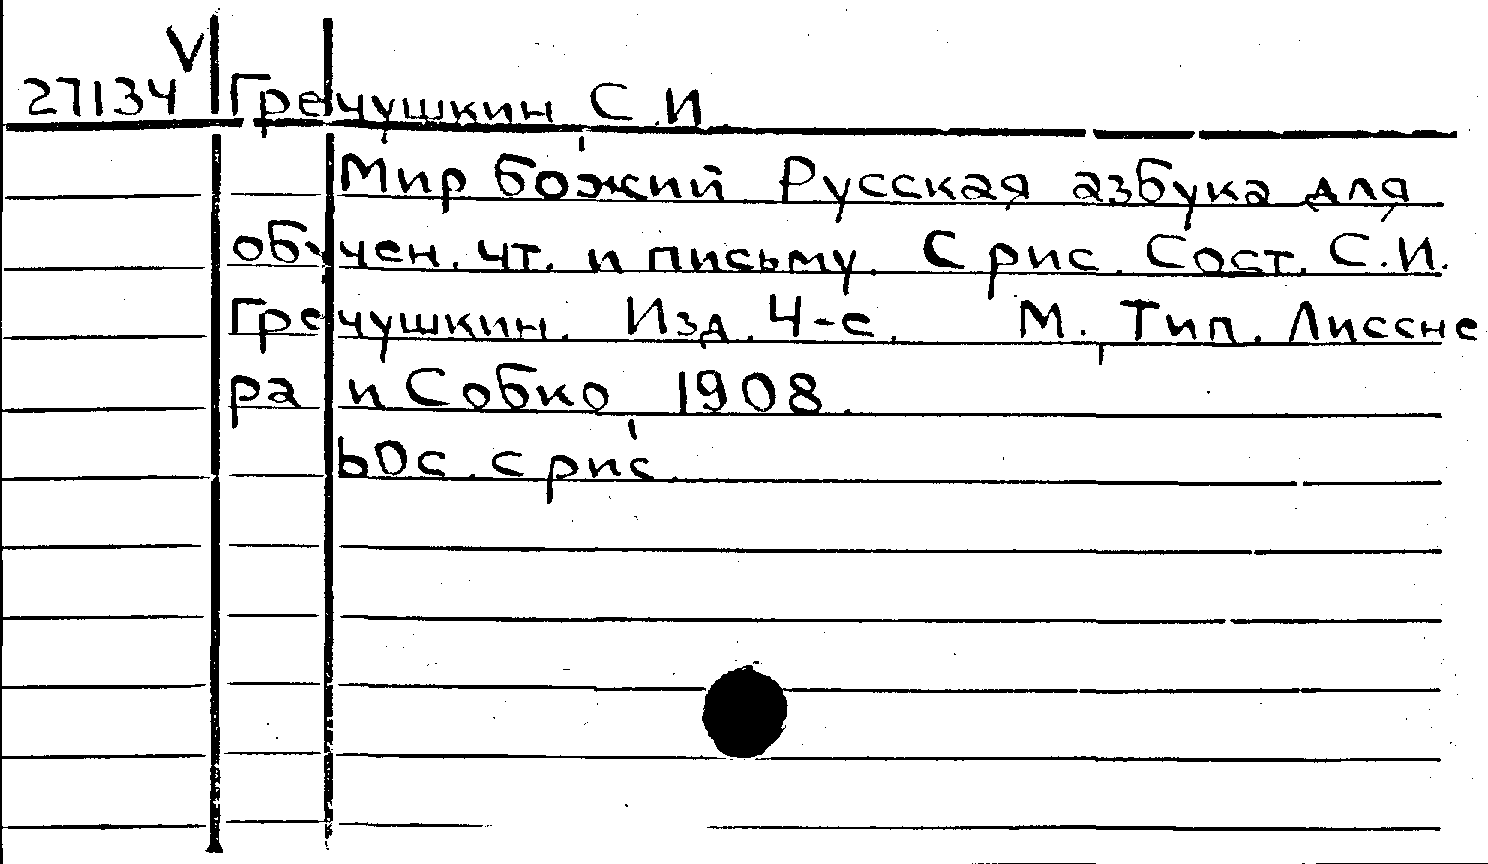 V
27134 Гречушкин, С.И.
Мир божий. Русская азбука для
обучен. чт. и письму. С рис. Сост. С.И.
Гречушкин. Изд. 4-е. М., Тип. Лиссне
ра и Собко, 1908.
60с. с рис.